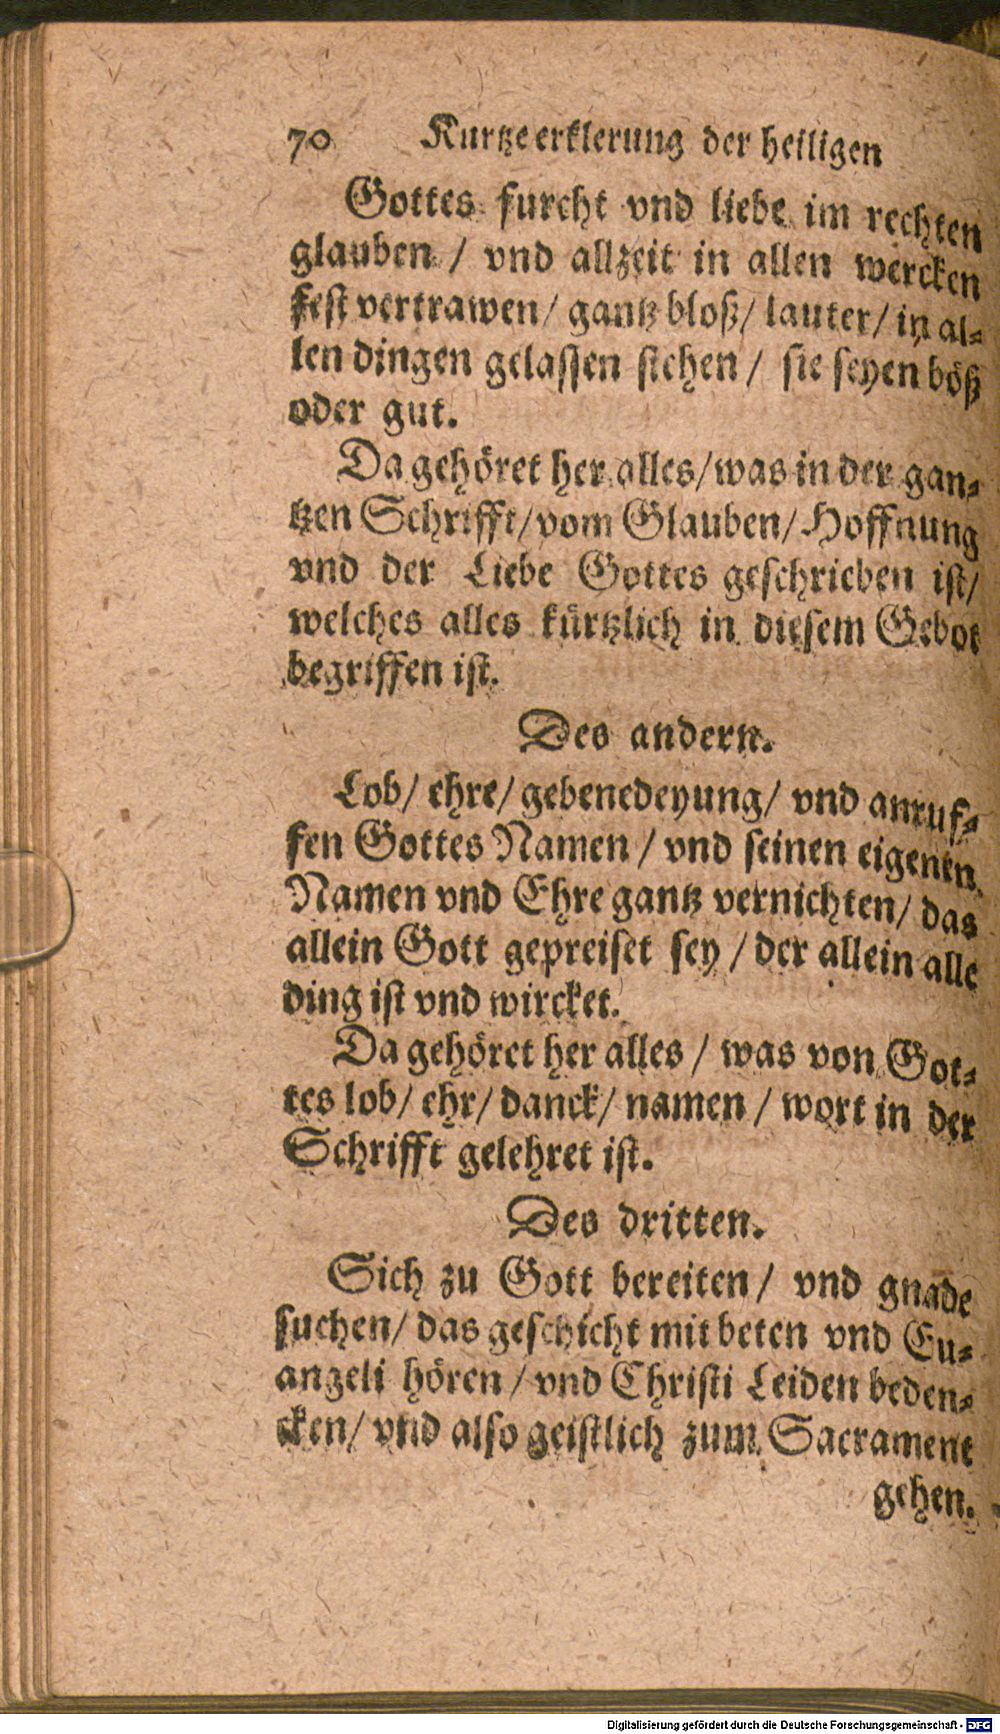 70 Kurtze erklerung der heiligen
Gottes furcht vnd liebe im rechten
glauben / vnd allzeit in allen wercken
fest vertrawen / gantz bloß / lauter / in al-
len dingen gelassen stehen / sie seyen böß
oder gut.
Da gehöret her alles / was in der gan-
tzen Schrifft / vom Glauben / Hoffnung
vnd der Liebe Gottes geschrieben ist /
welches alles kürtzlich in diesem Gebot
begriffen ist.
Des andern.
Lob / ehre / gebenedeyung / vnd anruf-
fen Gottes Namen / vnd seinen eigenen
Namen vnd Ehre gantz vernichten / das
allein Gott gepreiset sey / der allein alle
ding ist vnd wircket.
Da gehöret her alles / was von Got-
tes lob / ehr / danck / namen / wort in der
Schrifft gelehret ist.
Des dritten.
Sich zu Gott bereiten / vnd gnade
suchen / das geschicht mit beten vnd Eu-
angeli hören / vnd Christi Leiden beden-
cken / vnd also geistlich zum Sacrament
gehen.
Digitalisierung gefördert durch die Deutsche Forschungsgemeinschaft - DFG